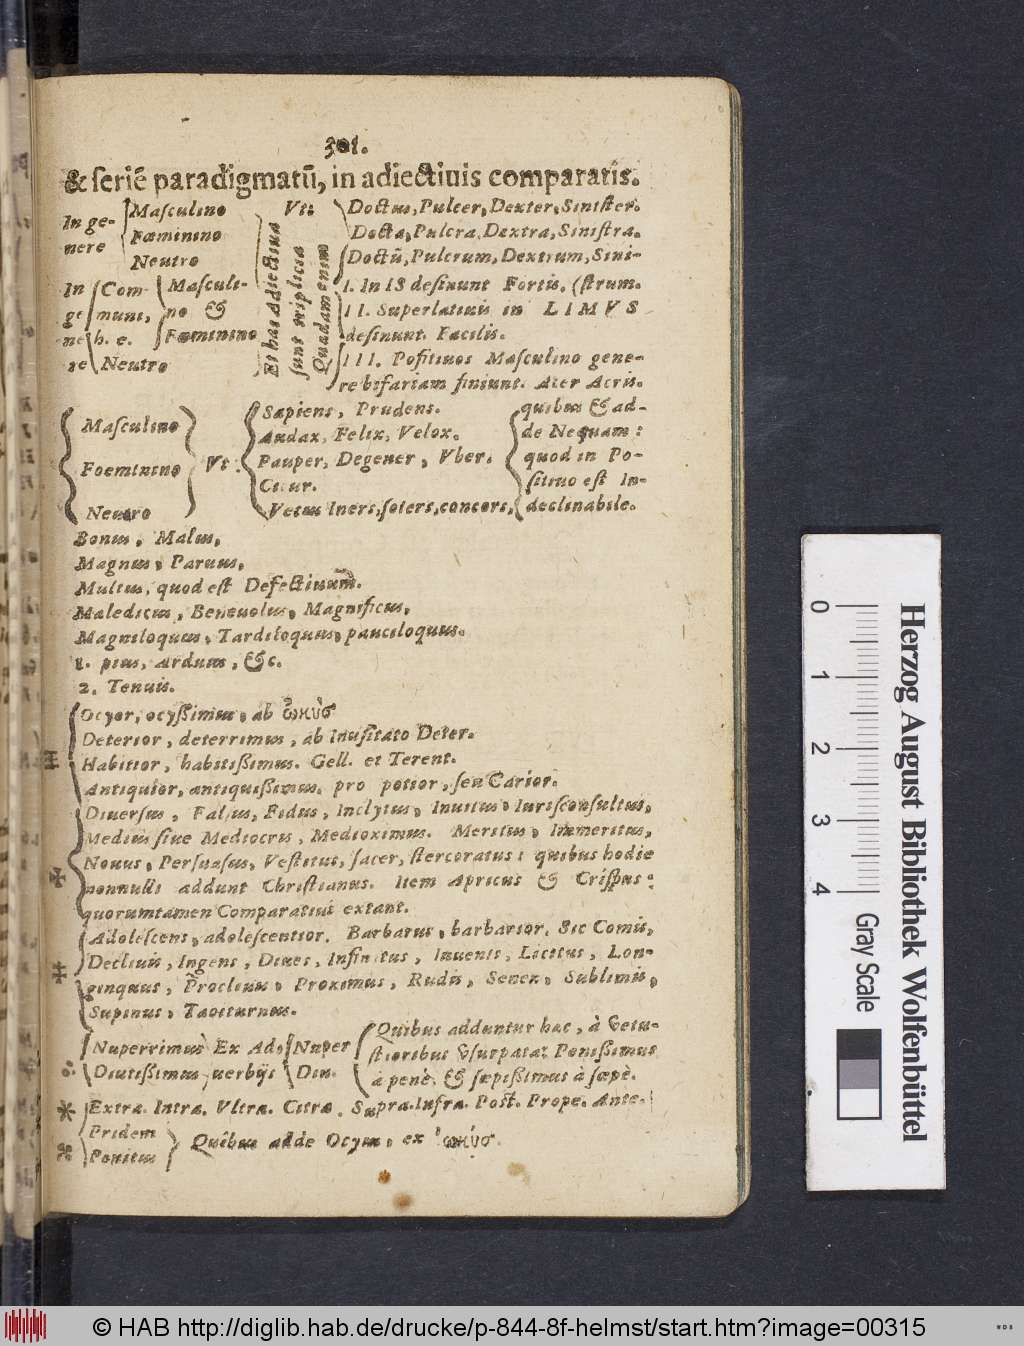 301.
& ſeriē paradigmatū, in adiectiuis comparatis.
In ge-
nere
Maſculino
Fœminino
Neutro
Vt:
Doctus, Pulcer, Dexter, Siniſter.
Docta, Pulcra, Dextra, Siniſtra.
Doctū, Pulcrum, Dextrum, Sini-
In
ge
ne
re
Com-
muni,
h. e.
Neutro
Maſculi-
no &
Fœminino
Et hæc Adiectiua
ſunt triplicia
Quadamenim
I. In IS deſinunt Fortis. (ſtrum.
II. Superlatiuis in LIMVS
deſinunt. Facilis.
III. Poſitiuos Maſculino gene-
re bifariam finiunt. Acer Acris.
Maſculino
Foeminino
Neutro
Vt
Sapiens, Prudens.
Audax, Felix, Velox.
Pauper, Degener, Vber.
Cicur.
Vetus Iners, ſoters, concors,
quibus & ad-
de Nequam:
quod in Po-
ſitiuo eſt In-
declinabile.
Bonus, Malus,
Magnus, Paruus,
Multus, quod eſt Defectiuum.
Maledicus, Beneuolus, Magnificus,
Magniloquus, Tardiloquus, pauciloquus.
1. pius, Arduus, &c.
2. Tenuis.
Ocyor, ocyßimus, ab ὠκὺς
Deterior, deterrimus, ab Inuſitato Deter.
Habitior, habitißimus. Gell. et Terent.
Antiquior, antiquißimus. pro potior, ſeu Carior.
Diuerſus, Falſus, Fidus, Inclytus, Inuitus, Iurisconſultus,
Medius ſiue Mediocris, Medioximus. Meritus, Immeritus,
Nouus, Perſuaſus, Veſtitus, ſacer, ſtercoratus: quibus hodie
nonnulli addunt Chriſtianus. Item Apricus & Criſpus:
quorum tamen Comparatiui extant.
Adoleſcens, adoleſcentior. Barbarus, barbarior. Sic Comis,
Decliuis, Ingens, Diues, Infinitus, Iuuenis, Licitus, Lon-
ginquus, Procliuis, Proximus, Rudis, Senex, Sublimis,
Supinus, Taciturnus.
Nuperrimus
Diutißimus
Ex Ad-
uerbijs
Nuper
Diu.
Quibus adduntur hæc, à vetu-
ſtioribus vſurpata: Penißimus
à penè, & ſæpißimus à ſæpè.
Extra. Intra. Vltra. Citra. Supra. Infra. Poſt. Prope. Ante.
Pridem
Penitus
Quibus adde Ocyus, ex ὠκύς.
Herzog August Bibliothek Wolfenbüttel
0 1 2 3 4
Gray Scale
© HAB http://diglib.hab.de/drucke/p-844-8f-helmst/start.htm?image=00315